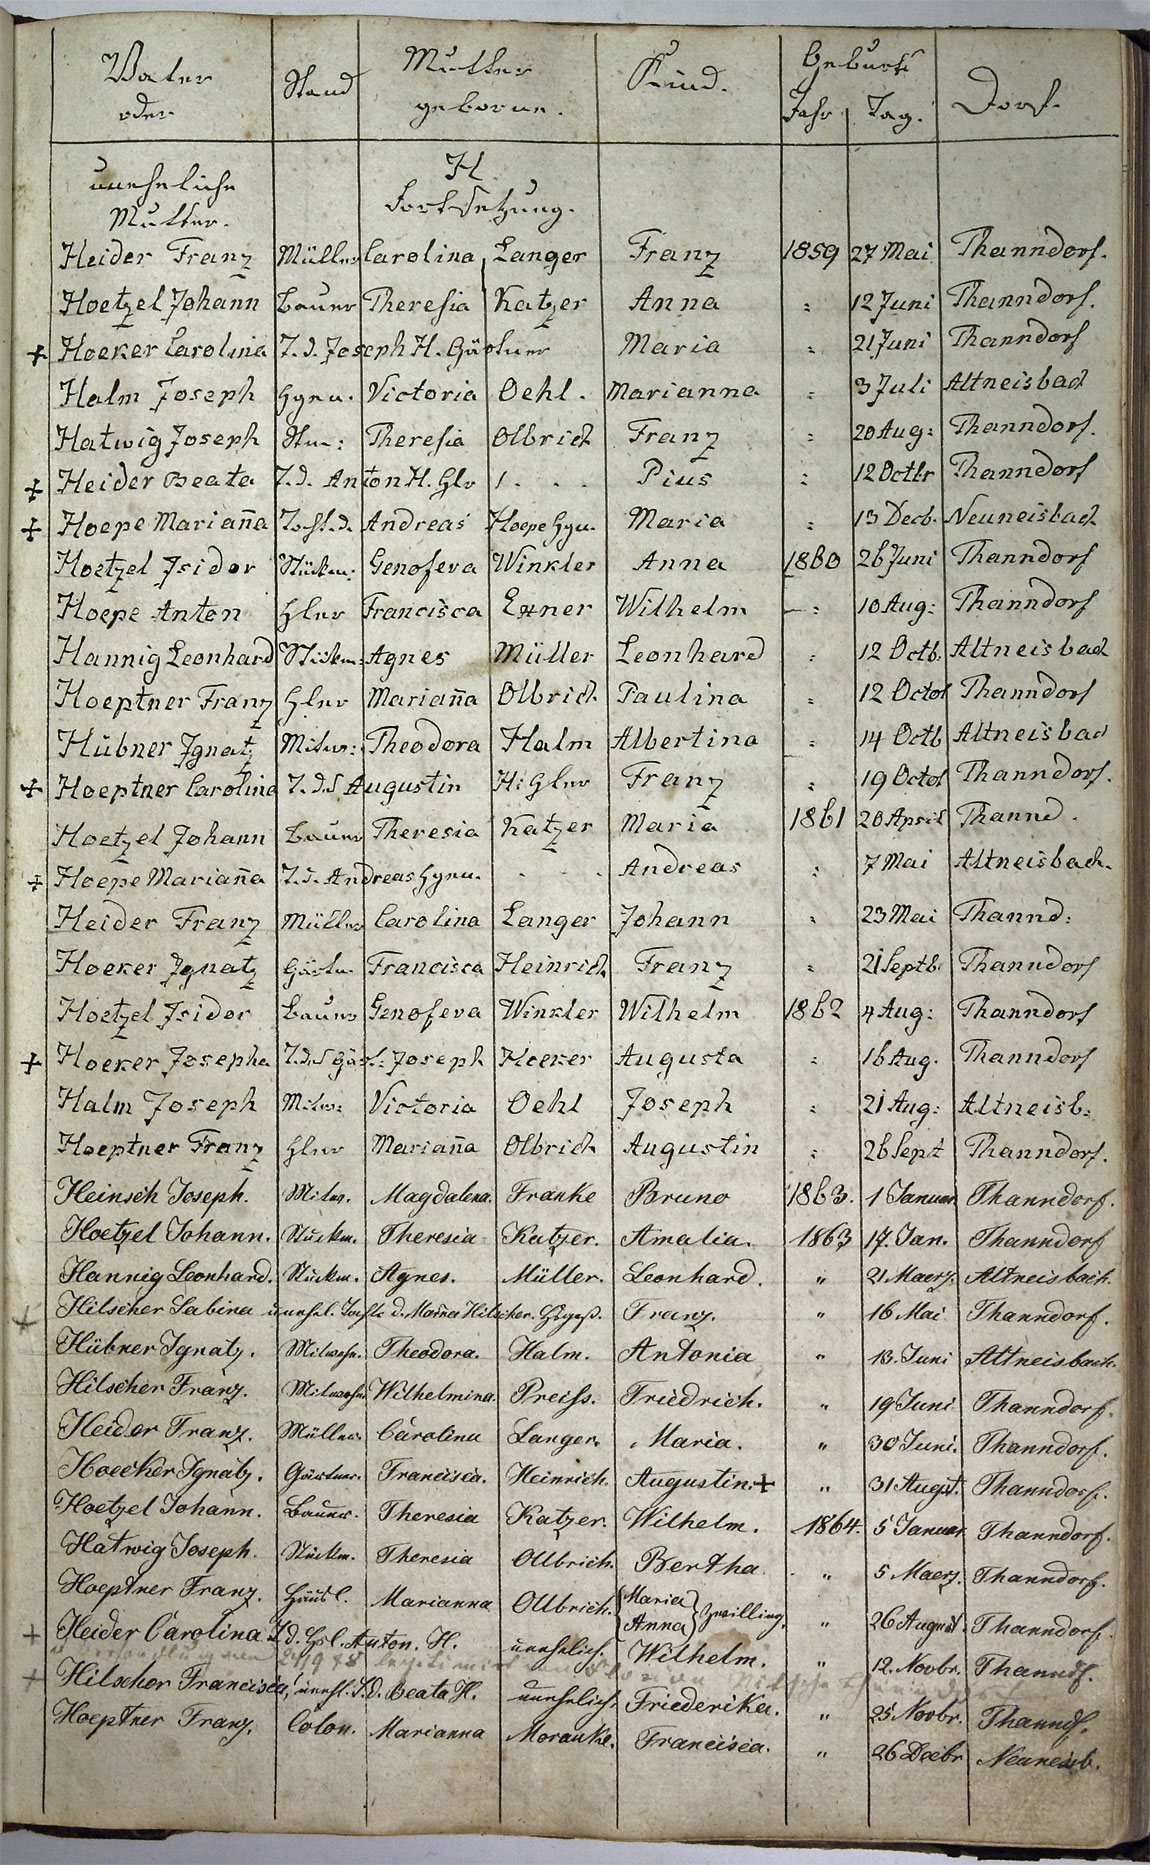 Vater Stand Mutter Kind. Geburts Dorf.
oder geborne. Jahr Tag.
uneheliche H
Mutter. Fortsetzung.
Heider Franz Müller Carolina Langer Franz 1859 27 Mai Thanndorf.
Hoetzel Johann Bauer Theresia Katzer Anna : 12 Juni Thanndorf.
+ Hoeker Carolina T. d. Joseph H. Gärtner Maria : 21 Juni Thanndorf
Halm Joseph Victoria Oehl. Marianna : 3 Juli Altneisbach
Hatwig Joseph Stm: Theresia Olbrich Franz : 20 Aug: Thanndorf.
+ Heider Beata T. d. Anton H. Glr Pius : 12 Octbr Thanndorf
+ Hoepe Marian̄a Tocht. d. Andreas Hoepe Maria : 13 Decb. Neuneisbach
Hoetzel Isidor Stückm: Genofeva Winkler Anna 1860 26 Juni Thanndorf
Hoepe Anton Francisca Exner Wilhelm : 10 Aug: Thanndorf
Hannig Leonhard Stückm: Agnes Müller Leonhard : 12 Octb. Altneisbach
Hoeptner Franz Marian̄a Olbrich Paulina : 12 Octob Thanndorf
Hübner Ignatz Mitw: Theodora Halm Albertina : 14 Octb Altneisbach
+ Hoeptner Carolina T. d. Augustin H: Franz : 19 Octob Thanndorf.
Hoetzel Johann Bauer Theresia Katzer Maria 1861 20 April Thannd.
+ Hoepe Marian̄a T. d. Andreas Andreas : 7 Mai Altneisbach.
Heider Franz Müller Carolina Langer Johann : 23 Mai Thannd:
Hoeker Ignatz Gärtn. Francisca Heinrich Franz : 21 Septb. Thanndorf
Hoetzel Isidor Bauer Genofeva Winkler Wilhelm 1862 4 Aug: Thanndorf
+ Hoeker Josepha T. d. Joseph Hoeker Augusta : 16 Aug. Thanndorf
Halm Joseph Mitw: Victoria Oehl Joseph : 21 Aug: Altneisb:
Hoeptner Franz Marian̄a Olbrich Augustin : 26 Sept Thanndorf.
Heinsch Joseph. Mitw. Magdalena. Franke Bruno 1863. 1 Januar Thanndorf.
Hoetzel Johann. Stückm. Theresia Katzer. Amalia. 1863 17. Jan. Thanndorf
Hannig Leonhard. Stückm. Agnes. Müller. Leonhard. " 21 Maerz. Altneisbach.
+ Hilscher Sabina unehel. Tocht. d. Mar̄na Hilscher. Franz. " 16 Mai Thanndorf.
Hübner Ignatz. Mitwohn. Theodora. Halm. Antonia " 13. Juni Altneisbach.
Hilscher Franz. Mitwohn Wilhelmina. Preiss. Friedrich. " 19 Juni Thanndorf.
Heider Franz. Müller. Carolina Langer. Maria. " 30 Juni. Thanndorf.
Hoecker Ignatz. Gärtner. Francisca. Heinrich. Augustin. + " 31 August. Thanndorf.
Hoetzel Johann. Bauer. Theresia Katzer. Wilhelm. 1864. 5 Januar. Thanndorf.
Hatwig Joseph. Stückm. Theresia Ollbrich. Bertha " 5 Maerz. Thanndorf.
Hoeptner Franz. Häusl. Marianna Ollbrich. Maria Anna Zwilling. " 26 August. Thanndorf.
+ Heider Carolina T. d. Hsl. Anton. H. unehelich. Wilhelm. " 12. Novbr. Thanndf.
+ Hilscher Francisca, unehl. T. d. Beata H. unehelich. Friederika. " 25 Novbr. Thanndf.
Hoeptner Franz. Colon. Marianna Morauke. Francisca. " 26 Decbr Neuneisb.